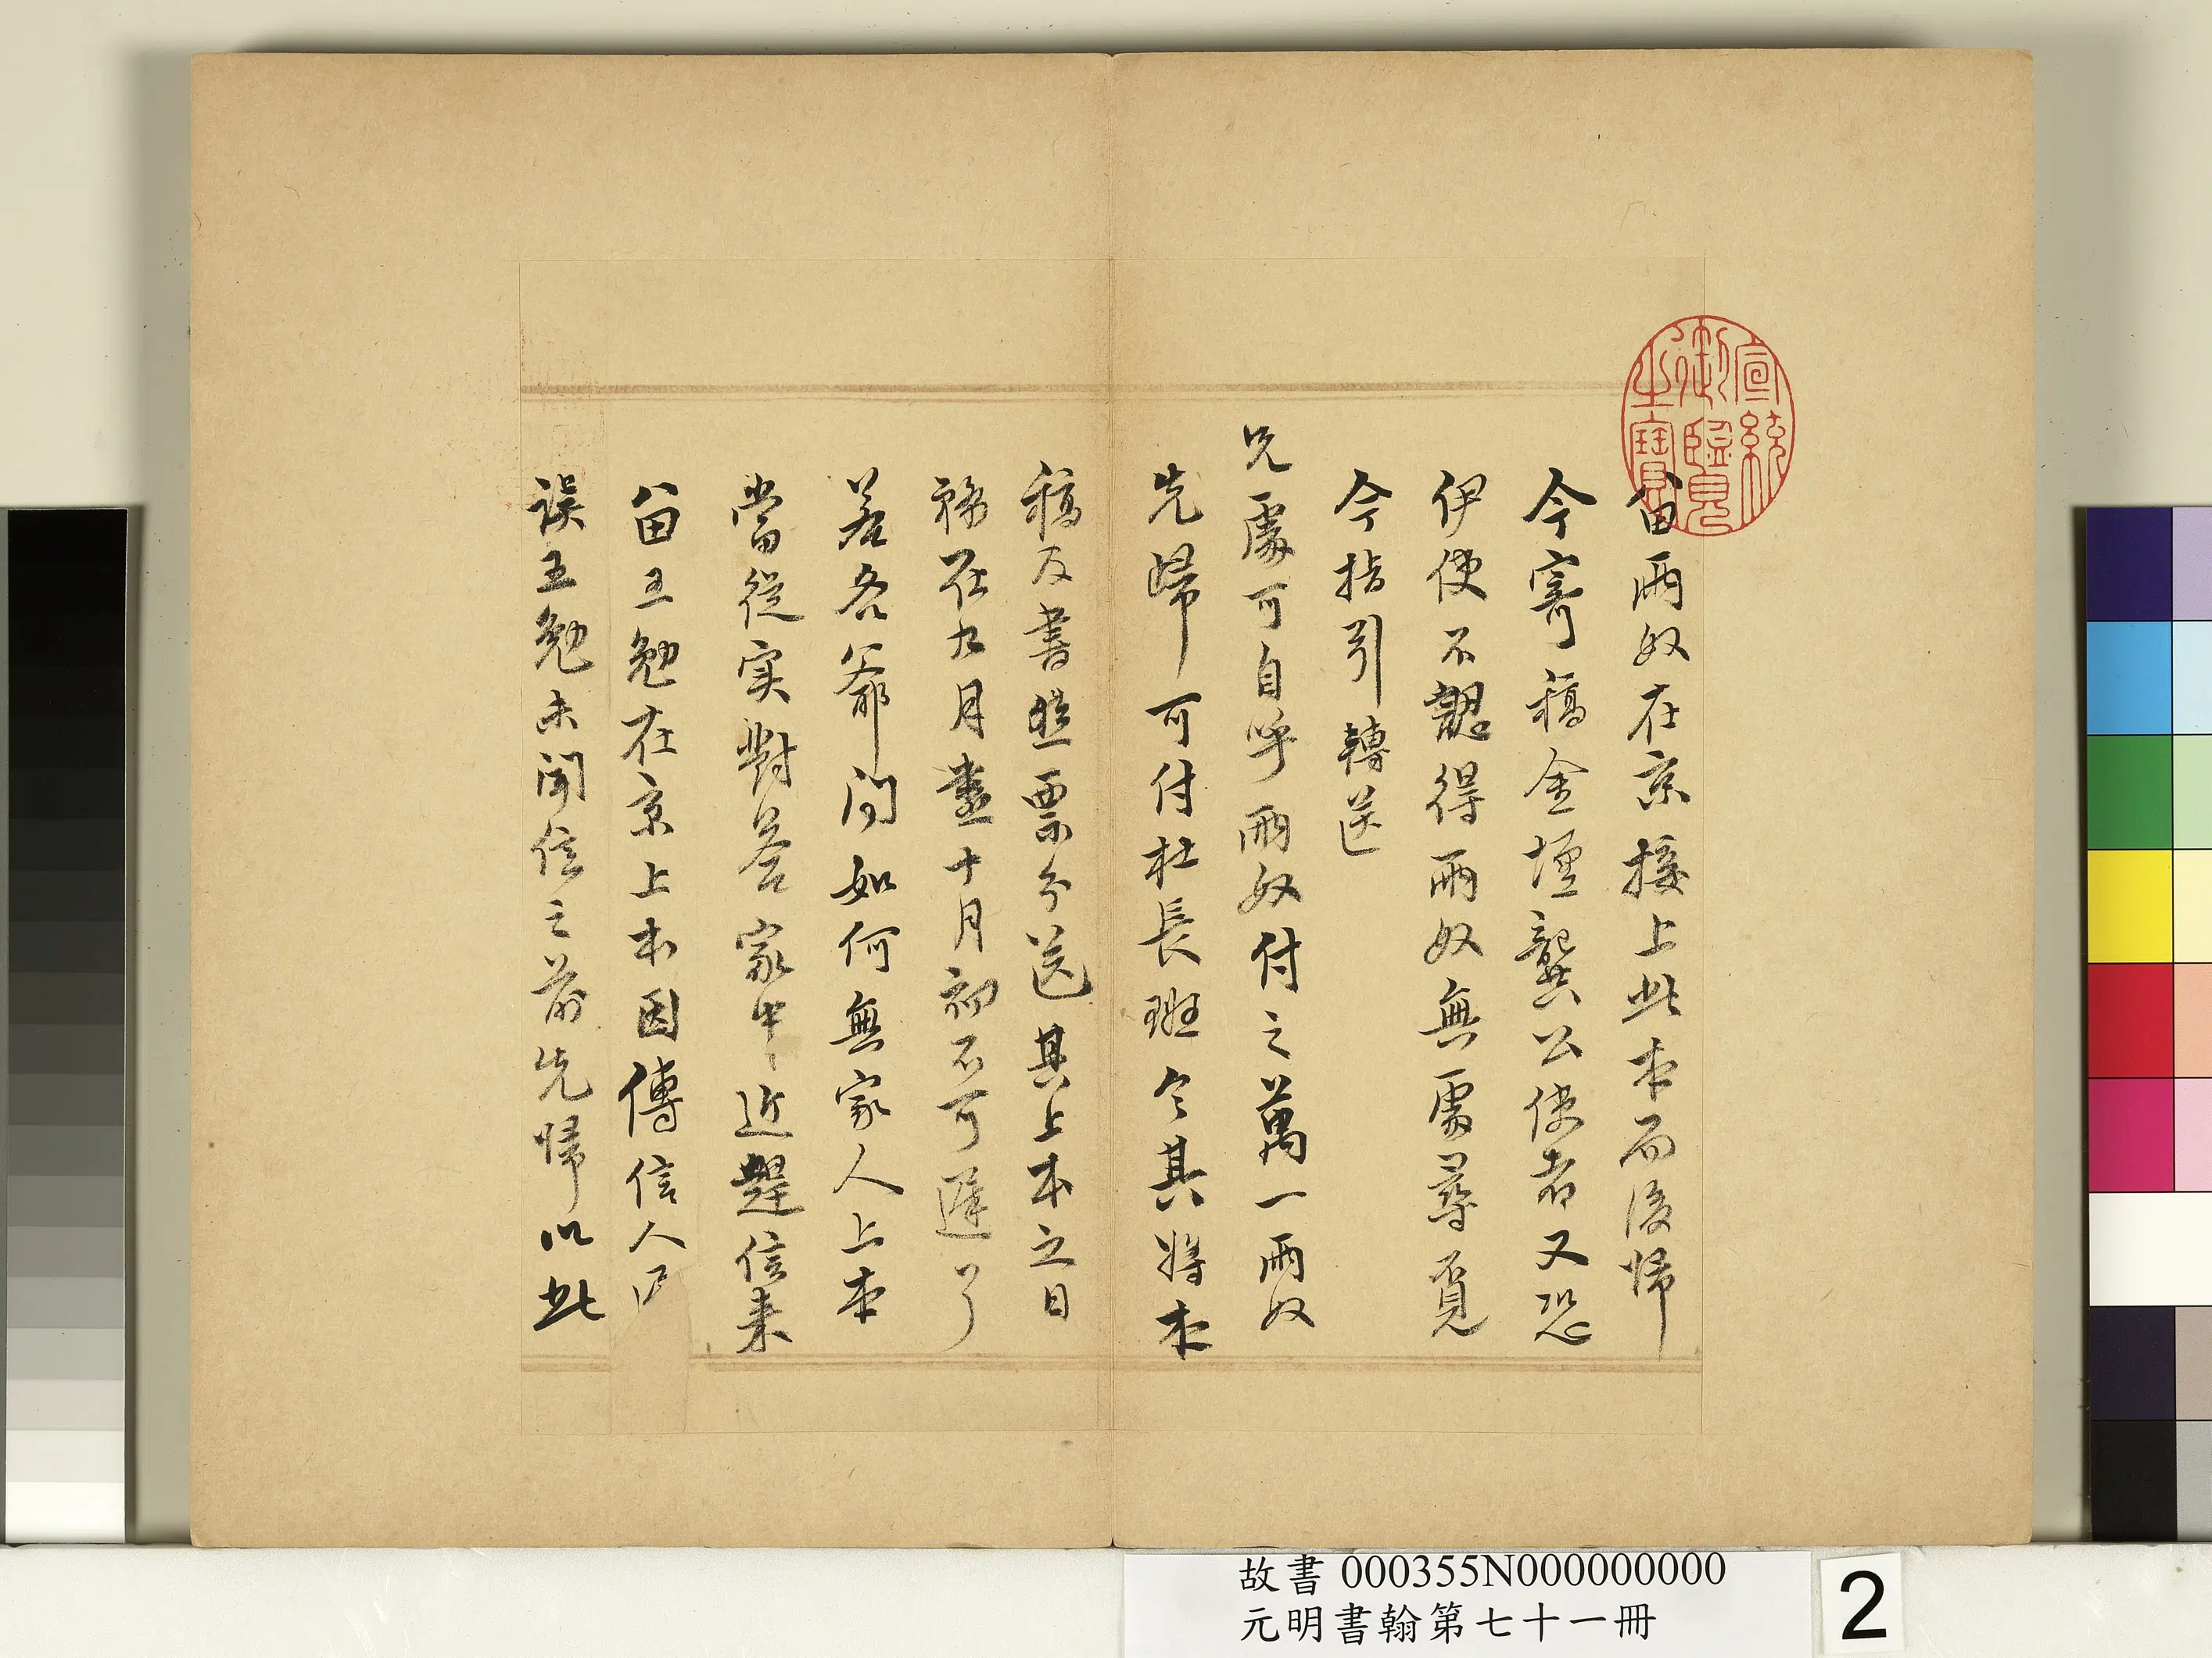 宣統御覽之寶
留兩奴在京接上此本而後歸
今寄稿金壇龔公使者又恐
伊使不認得兩奴無處尋覓
今指引轉送
兄處可自呼兩奴付之萬一兩奴
先歸可付杜長班令其將本
稿及書照票分送其上本之日
務在九月盡十月初不可遲了
若各爺問如何無家人上本
當從实對答家中近趕信来
留王勉在京上本因傳信人
誤王勉未聞信之前先歸以此
故書 000355N000000000
元明書翰第七十一冊
2